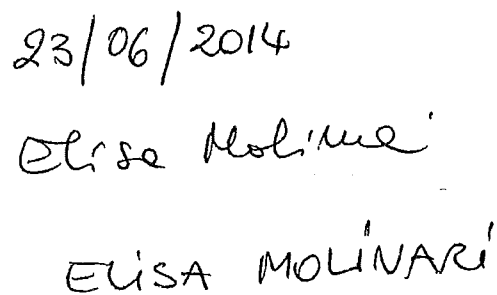 23/06/2014
Elisa Molinari
ELISA MOLINARI